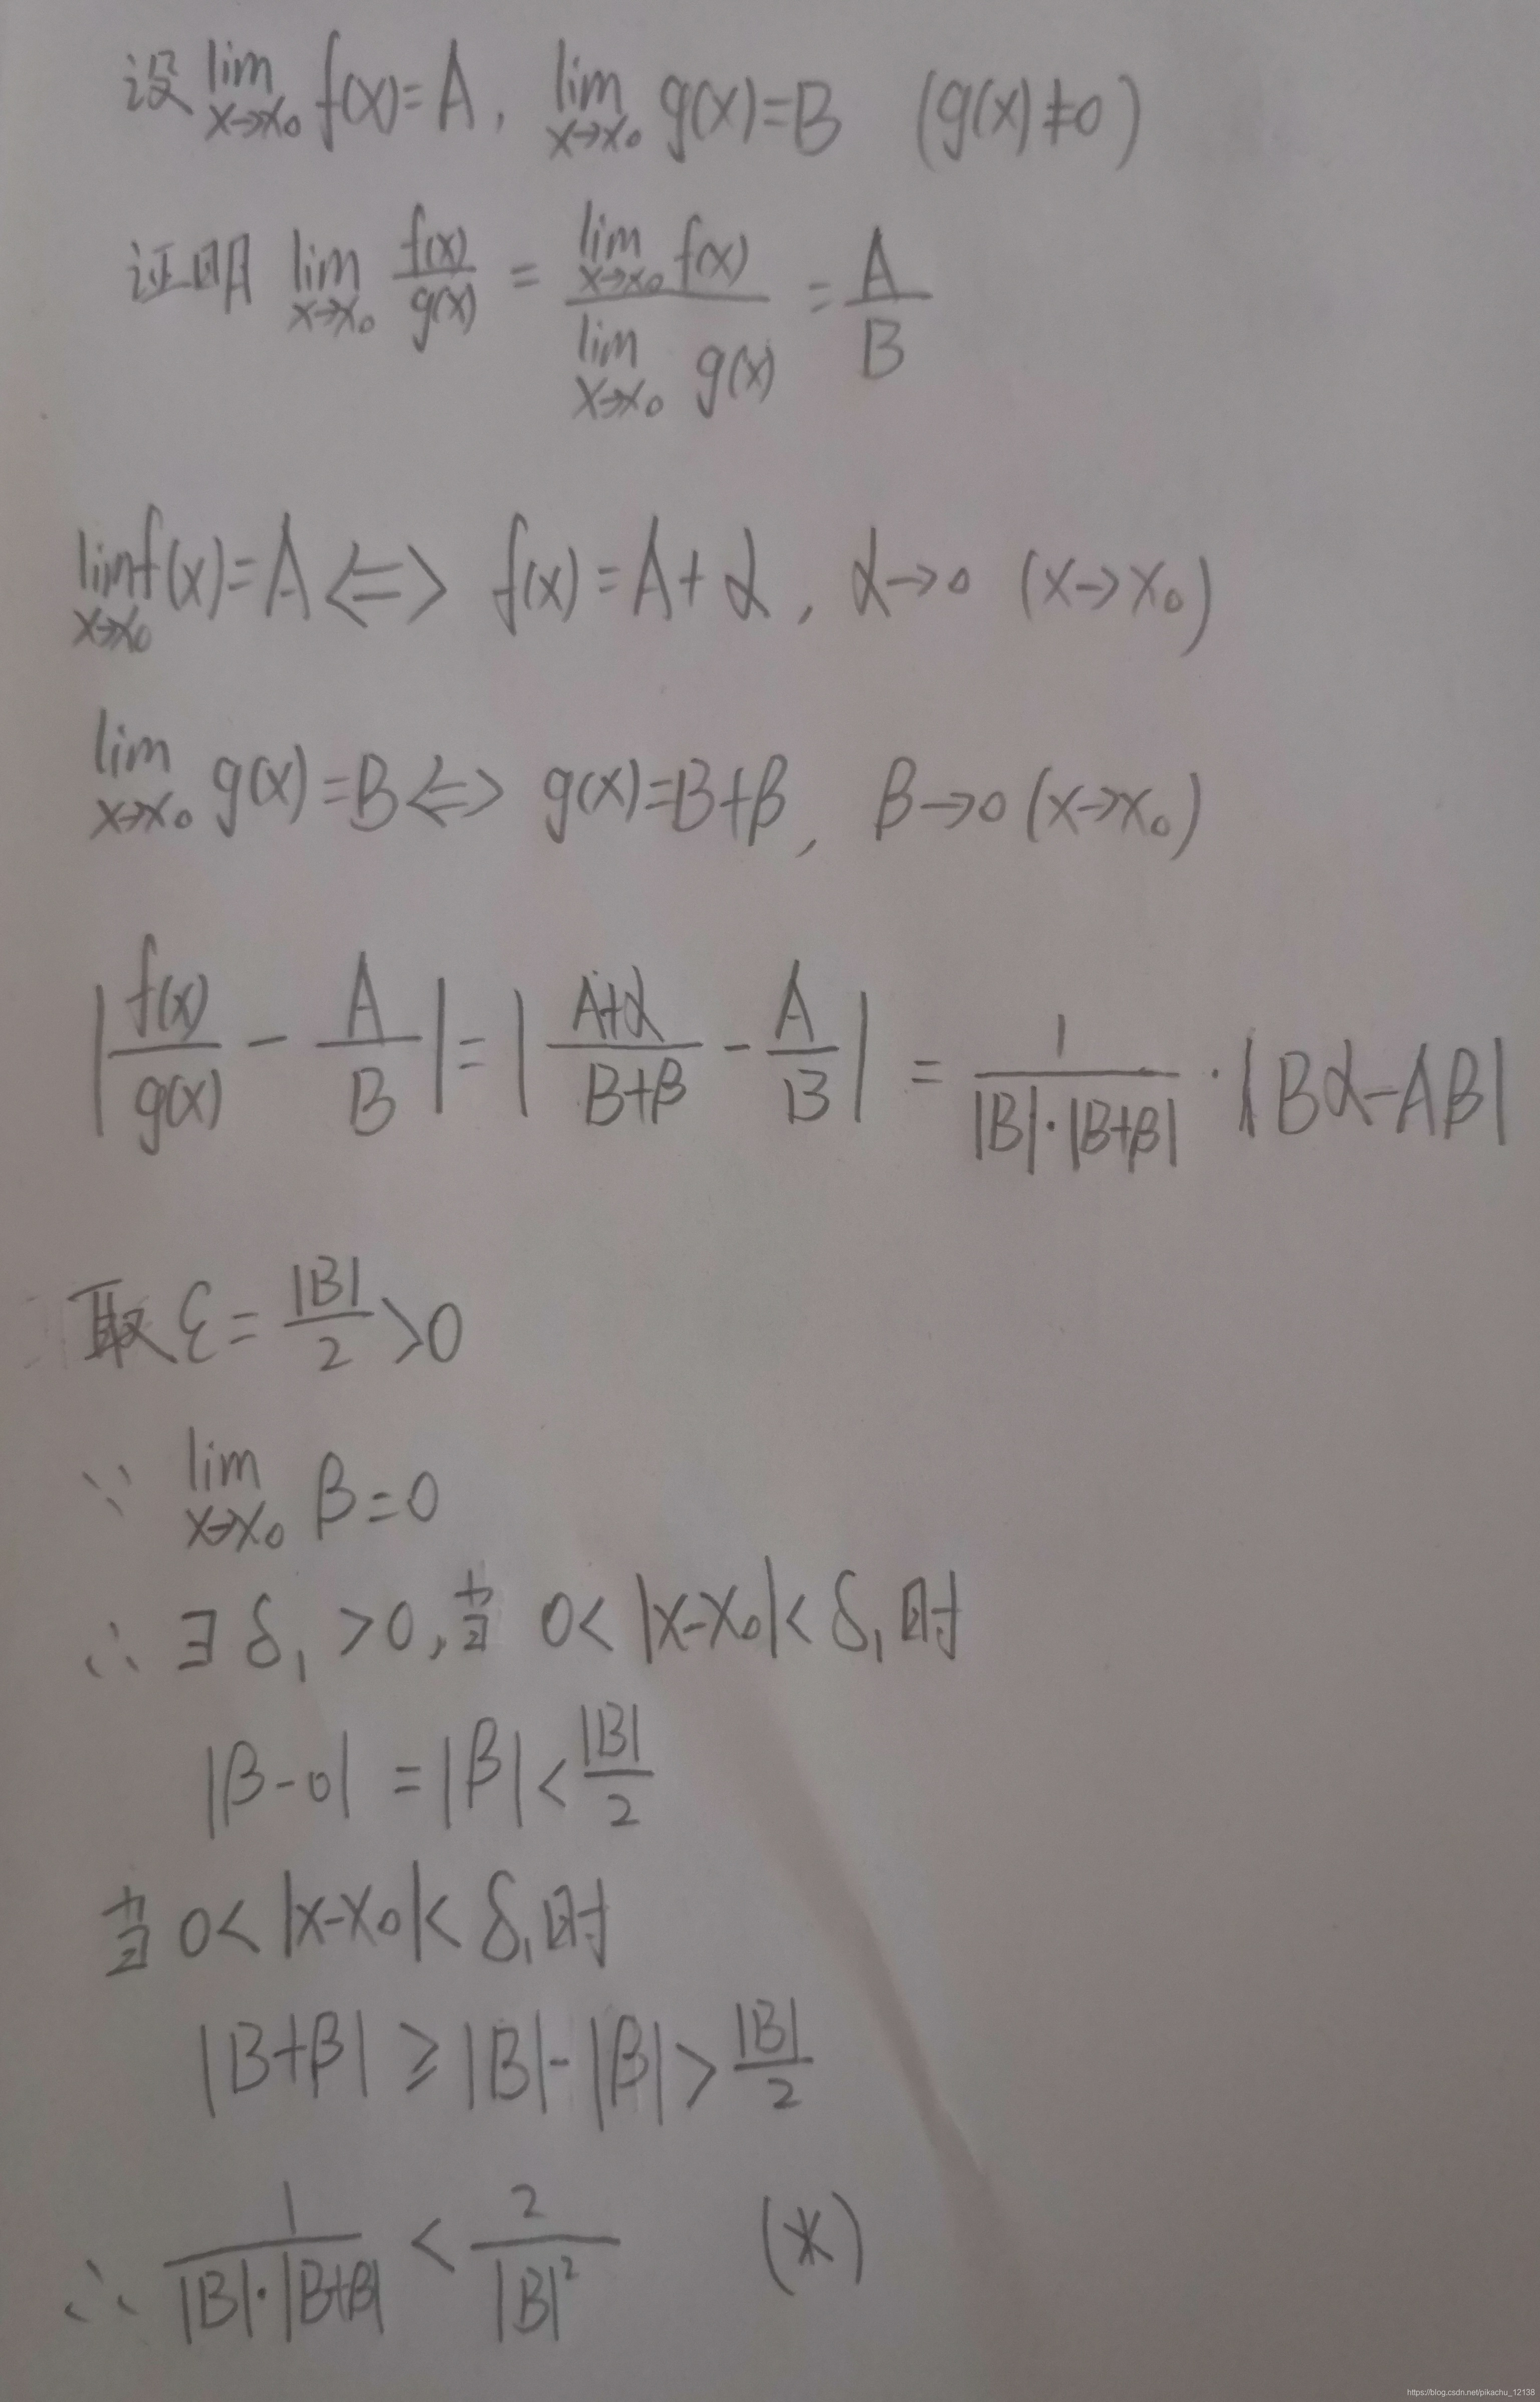 设 lim x→x₀ f(x)=A, lim x→x₀ g(x)=B (g(x)≠0)
证明 lim x→x₀ f(x)/g(x) = lim x→x₀ f(x) / lim x→x₀ g(x) = A/B
lim x→x₀ f(x)=A <=> f(x)=A+α, α→0 (x→x₀)
lim x→x₀ g(x)=B <=> g(x)=B+β, β→0 (x→x₀)
|f(x)/g(x) - A/B| = |(A+α)/(B+β) - A/B| = 1/(|B|·|B+β|) · |Bα-Aβ|
取 ε = |B|/2 >0
∵ lim x→x₀ β=0
∴ ∃ δ₁ >0, 当 0< |x-x₀|< δ₁ 时
|β-0| = |β| < |B|/2
当 0< |x-x₀|< δ₁ 时
|B+β| ≥ |B|-|β| > |B|/2
∴ 1/(|B|·|B+β|) < 2/|B|² (*)
https://blog.csdn.net/pikachu_12138